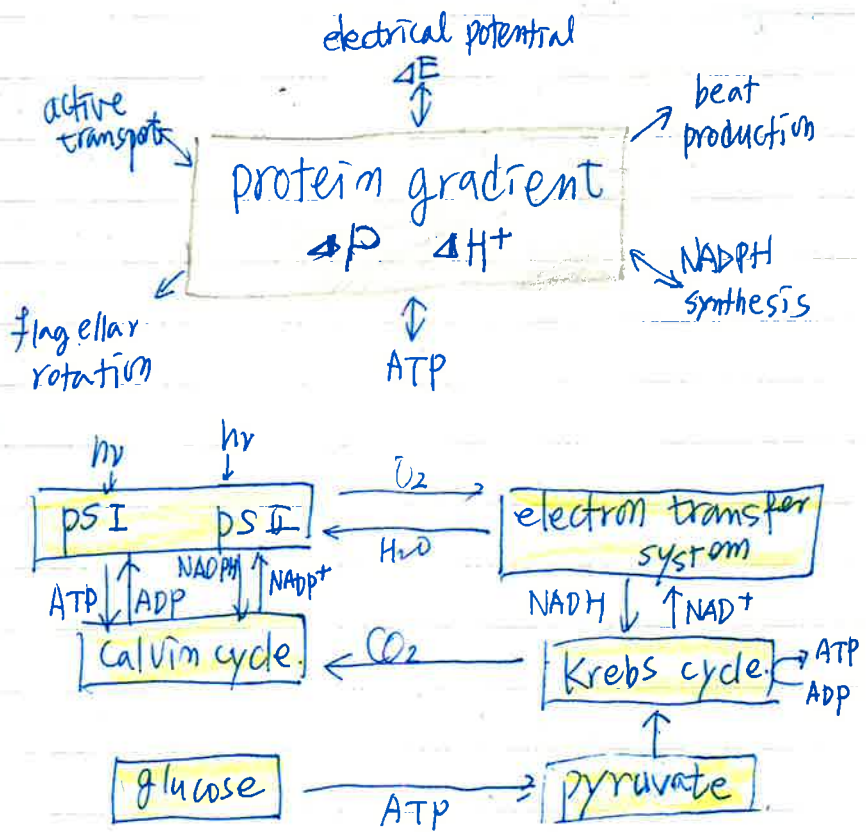 electrical potential
ΔE
active
transport
beat
production
protein gradient
ΔP ΔH+
NADPH
synthesis
flagellar
rotation
ATP
hν hν
PS I PS II
O2
H2O
electron transfer
system
ATP ADP NADPH NADP+
NADH NAD+
Calvin cycle.
CO2
Krebs cycle.
ATP
ADP
glucose
ATP
pyruvate